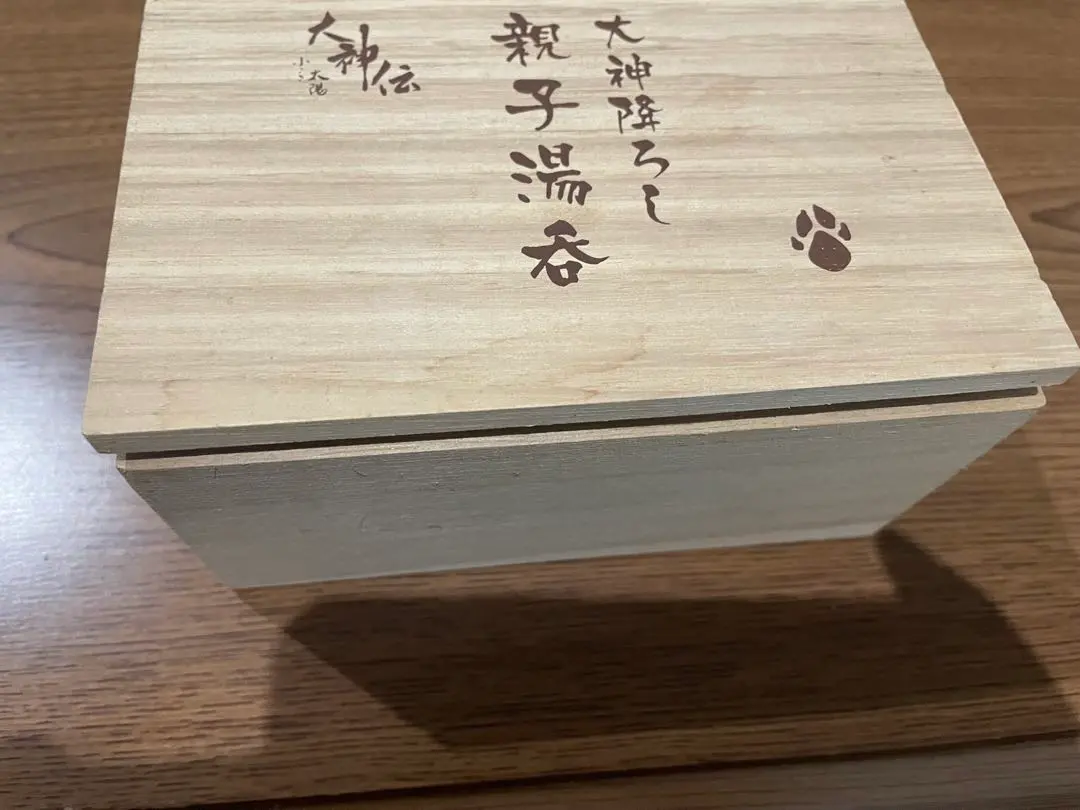 大神降ろし
親子湯呑
大神伝
小さき太陽